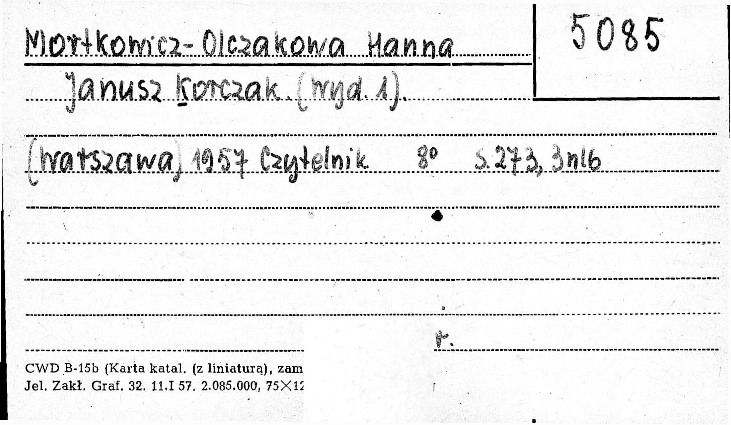 Mortkowicz-Olczakowa Hanna
5085
Janusz Korczak. (Wyd. 1).
(Warszawa) 1957 Czytelnik 8° s. 273, 3 nlb
r.
CWD B-15b (Karta katal. (z liniaturą), zam
Jel. Zakł. Graf. 32. 11.I 57. 2.085.000, 75×12